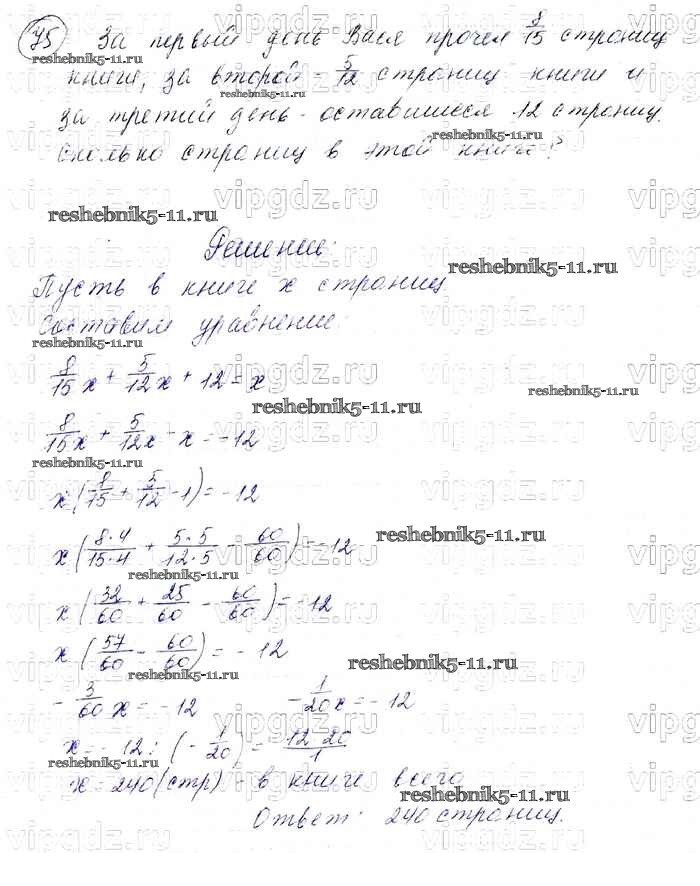 75 За первый день Вася прочел 8/15 страниц
книги, за второй - 5/12 страниц книги и
за третий день - оставшиеся 12 страниц.
Сколько страниц в этой книге?
Решение:
Пусть в книге x страниц
Составим уравнение:
8/15 x + 5/12 x + 12 = x
8/15 x + 5/12 x - x = -12
x (8/15 + 5/12 - 1) = -12
x (8·4/15·4 + 5·5/12·5 - 60/60) = -12
x (32/60 + 25/60 - 60/60) = -12
x (57/60 - 60/60) = -12
- 3/60 x = -12 - 1/20 x = -12
x = - 12 : (- 1/20) = 12 20/1
x = 240 (стр) - в книге всего
Ответ: 240 страниц.
reshebnik5-11.ru
vipgdz.ru